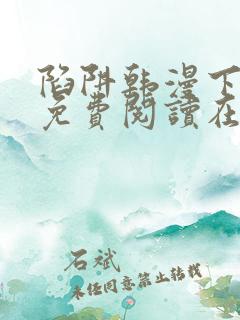 陷阱韩漫下
免費閱讀在
石斌
未经同意禁止转载